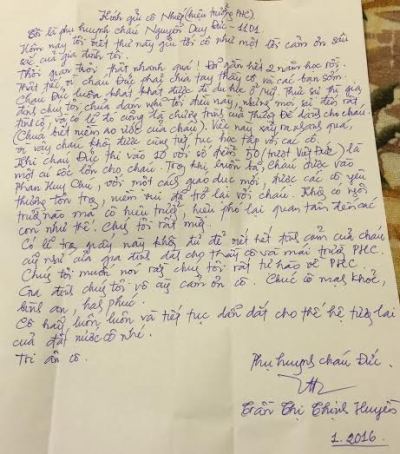 Kính gửi cô Nhiếp (hiệu trưởng PHC).
Tôi là phụ huynh cháu Nguyễn Duy Đức - 11D1.
Hôm nay tôi viết thư này gửi tới cô như một lời cảm ơn sâu
sắc của gia đình tôi.
Thời gian trôi thật nhanh quá! Đã gần hết 2 năm học rồi.
cháu Đức phải chia tay thầy cô và các bạn sớm.
Cháu Đức luôn khát khao được đi du học ở Mỹ. Thực sự thì gia
đình chưa dám nghĩ tới điều này, nhưng mọi sự đến rất
tình cờ, và có lẽ do công Chúa để dành cho cháu.
(Chưa biết niềm ao ước của cháu). Việc này xảy ra nhanh quá,
vì vậy cháu không được cùng tiếp tục học tập với các cô.
Khi cháu Đức thi vào 10 với số điểm 50 (trượt Việt Đức) là
một cú sốc lớn cho cháu. Trong khi buồn bã, cháu được vào
Phan Huy Chú, với một cách giáo dục mới, được các cô yêu
thương tôn trọng, niềm vui đã trở lại với cháu. Không có một
trường nào mà cô hiệu trưởng, hiệu phó lại quan tâm đến các
con như thế. Chúng tôi rất mừng.
Có lẽ trang giấy này không đủ để viết hết tình cảm của cháu
cũng như của gia đình dành cho thầy cô và mái trường PHC.
Chúng tôi muốn nói rằng chúng tôi rất tự hào về PHC.
Gia đình chúng tôi vô cùng cảm ơn cô. Chúc cô mạnh khỏe,
bình an, hạnh phúc.
Cô hãy luôn luôn và tiếp tục dẫn dắt cho thế hệ tương lai
của đất nước cô nhé.
Tri ân cô.
Phụ huynh cháu Đức.
Trần Thị Thịnh Huyền
1.2016.